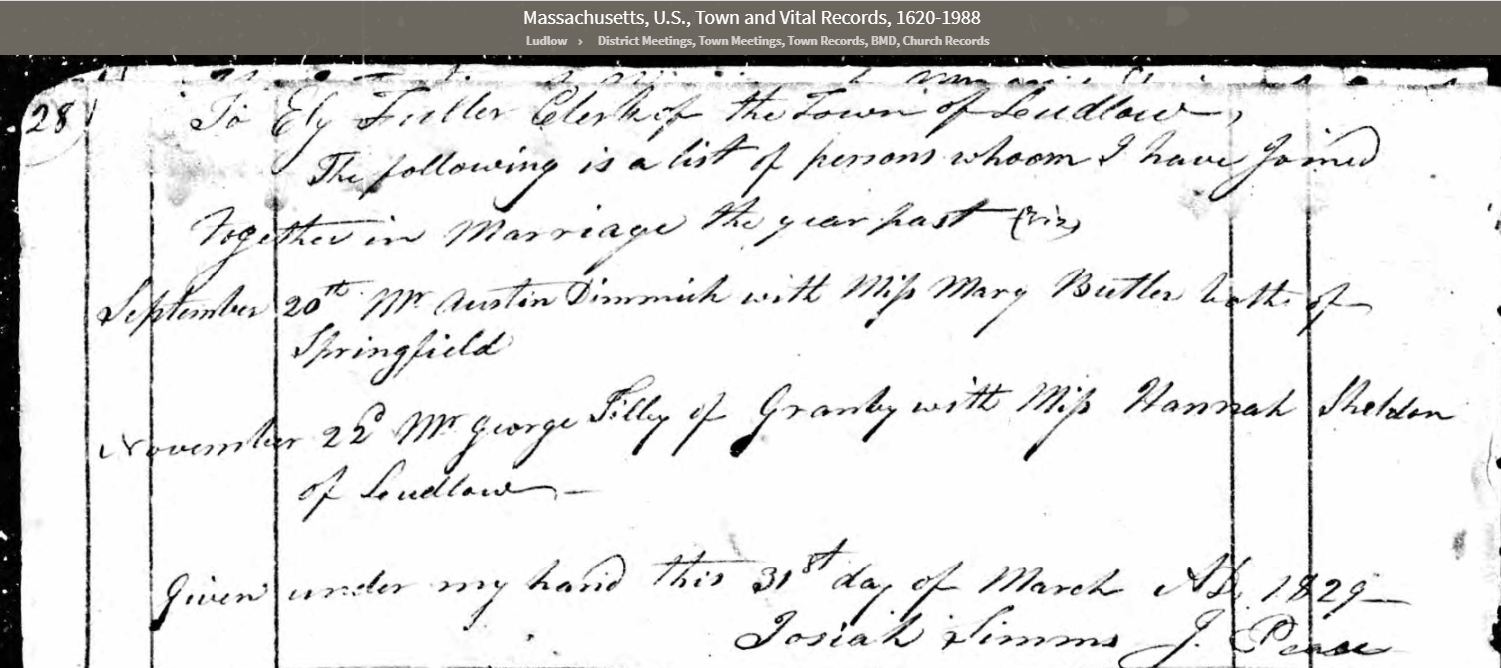 Massachusetts, U.S., Town and Vital Records, 1620-1988
Ludlow › District Meetings, Town Meetings, Town Records, BMD, Church Records
28
To Ely Fuller Clerk of the Town of Ludlow,
The following is a list of persons whoom I have Joined
together in Marriage the year past (Viz)
September 20th Mr Austin Dimmick with Miss Mary Butler both of
Springfield
November 22d Mr George Tilly of Granby with Miss Hannah Sheldon
of Ludlow —
Given under my hand this 31st day of March AD. 1829 —
Josiah Simms J. Peace